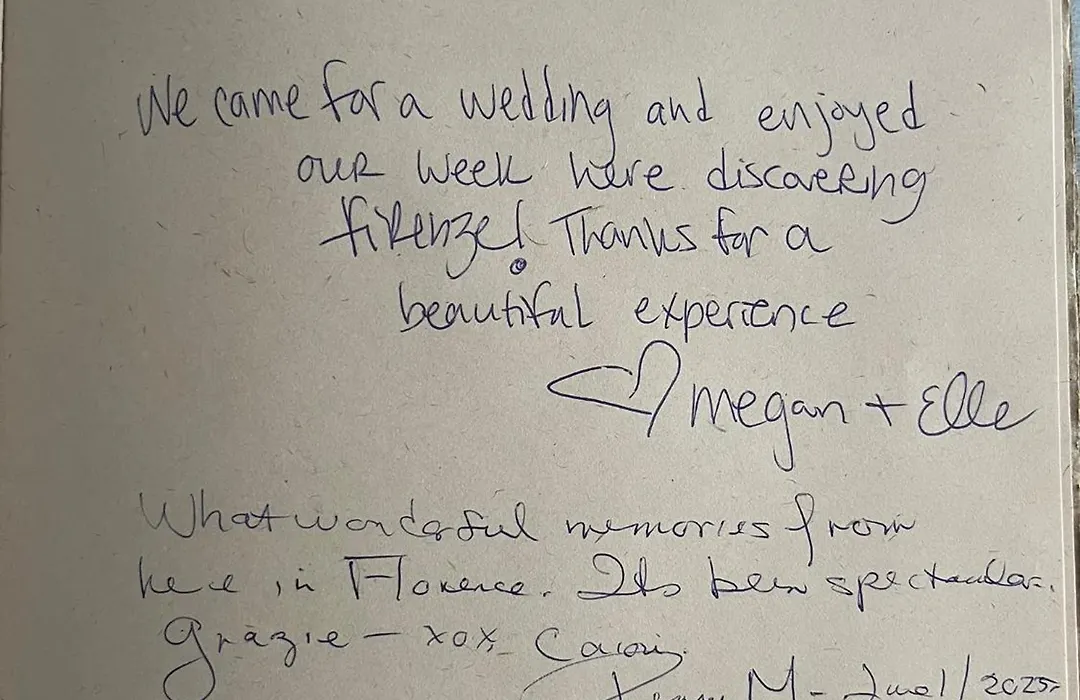 We came for a wedding and enjoyed
our week here discovering
firenze! Thanks for a
beautiful experience
♡ megan + Elle
What wonderful memories from
here in Florence. Its been spectacular.
Grazie – xox
M - /2025